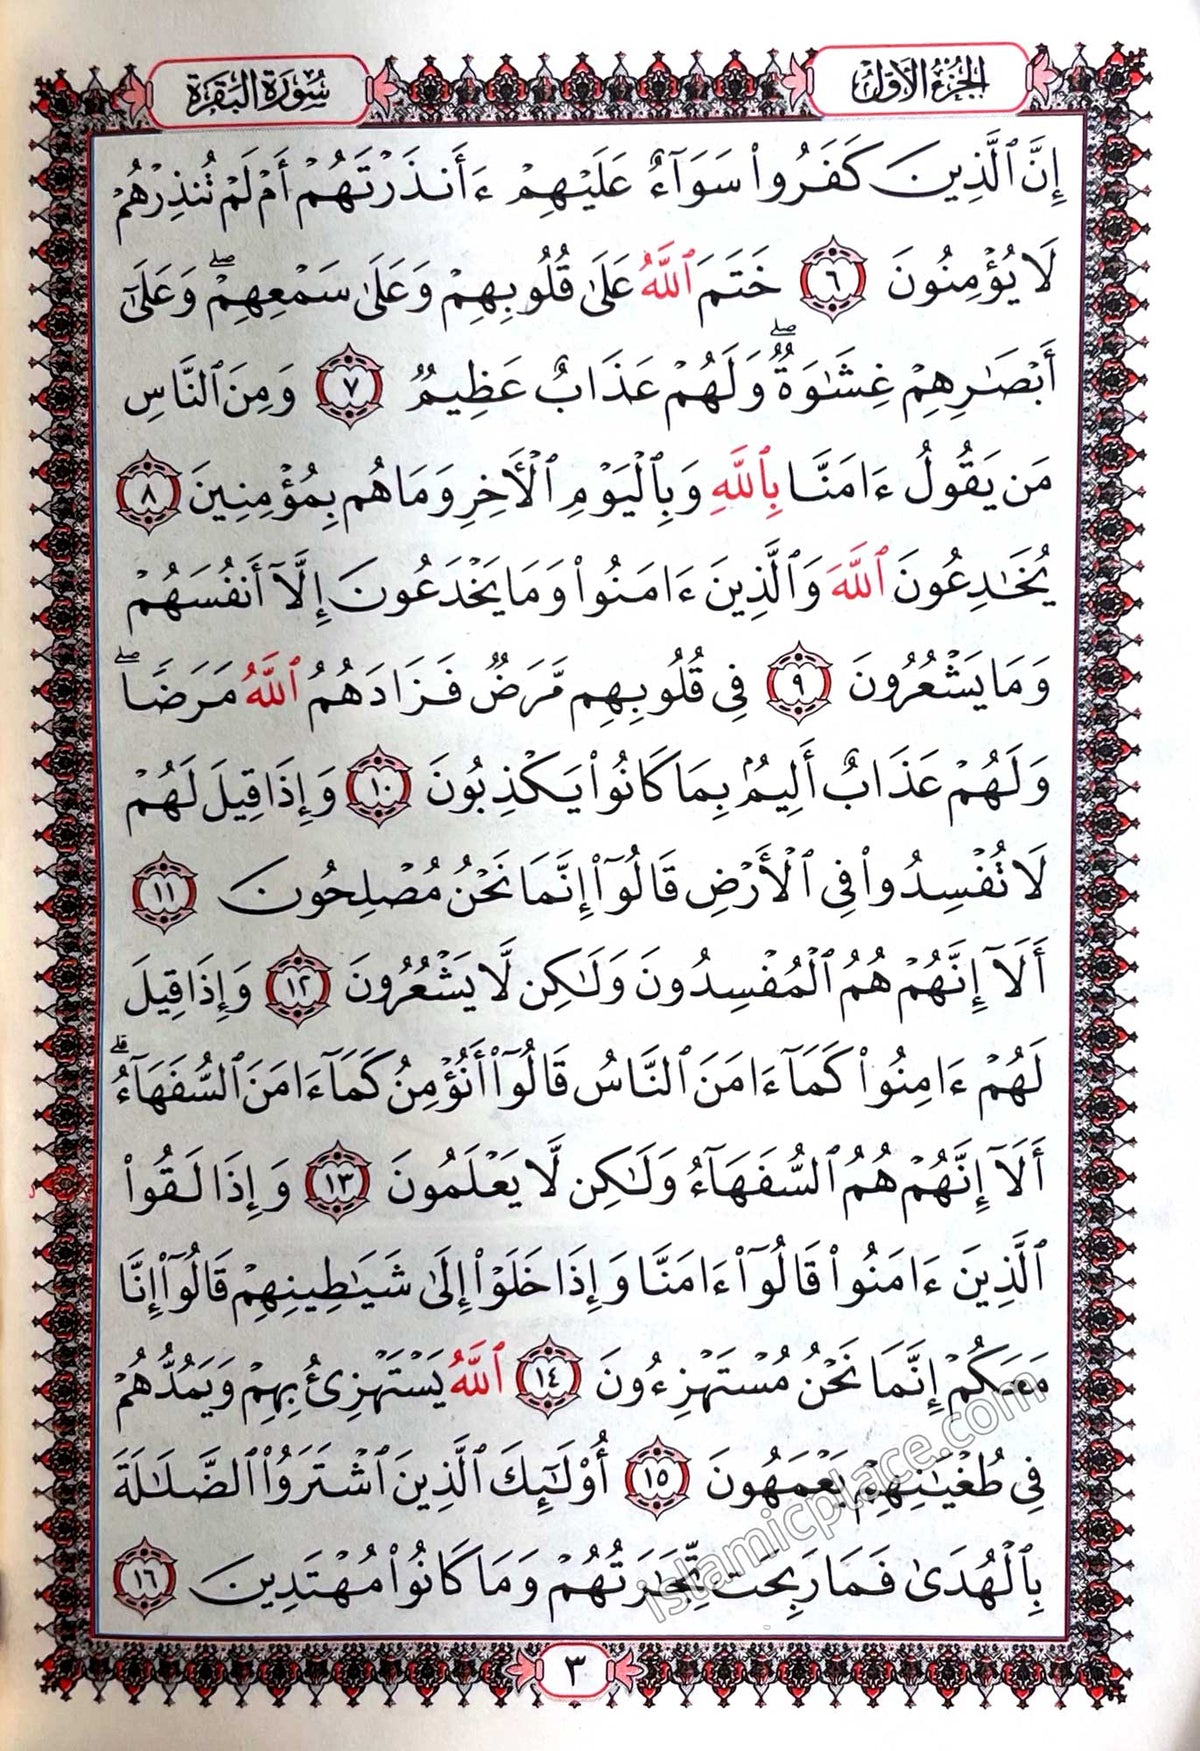 الجزء الأول
سورة البقرة
إِنَّ ٱلَّذِينَ كَفَرُوا۟ سَوَآءٌ عَلَيْهِمْ ءَأَنذَرْتَهُمْ أَمْ لَمْ تُنذِرْهُمْ
لَا يُؤْمِنُونَ ٦ خَتَمَ ٱللَّهُ عَلَىٰ قُلُوبِهِمْ وَعَلَىٰ سَمْعِهِمْ ۖ وَعَلَىٰٓ
أَبْصَٰرِهِمْ غِشَٰوَةٌ ۖ وَلَهُمْ عَذَابٌ عَظِيمٌ ٧ وَمِنَ ٱلنَّاسِ
مَن يَقُولُ ءَامَنَّا بِٱللَّهِ وَبِٱلْيَوْمِ ٱلْأَخِرِ وَمَا هُم بِمُؤْمِنِينَ ٨
يُخَٰدِعُونَ ٱللَّهَ وَٱلَّذِينَ ءَامَنُوا۟ وَمَا يَخْدَعُونَ إِلَّآ أَنفُسَهُمْ
وَمَا يَشْعُرُونَ ٩ فِى قُلُوبِهِم مَّرَضٌ فَزَادَهُمُ ٱللَّهُ مَرَضًا ۖ
وَلَهُمْ عَذَابٌ أَلِيمٌۢ بِمَا كَانُوا۟ يَكْذِبُونَ ١٠ وَإِذَا قِيلَ لَهُمْ
لَا تُفْسِدُوا۟ فِى ٱلْأَرْضِ قَالُوٓا۟ إِنَّمَا نَحْنُ مُصْلِحُونَ ١١
أَلَآ إِنَّهُمْ هُمُ ٱلْمُفْسِدُونَ وَلَٰكِن لَّا يَشْعُرُونَ ١٢ وَإِذَا قِيلَ
لَهُمْ ءَامِنُوا۟ كَمَآ ءَامَنَ ٱلنَّاسُ قَالُوٓا۟ أَنُؤْمِنُ كَمَآ ءَامَنَ ٱلسُّفَهَآءُ ۗ
أَلَآ إِنَّهُمْ هُمُ ٱلسُّفَهَآءُ وَلَٰكِن لَّا يَعْلَمُونَ ١٣ وَإِذَا لَقُوا۟
ٱلَّذِينَ ءَامَنُوا۟ قَالُوٓا۟ ءَامَنَّا وَإِذَا خَلَوْا۟ إِلَىٰ شَيَٰطِينِهِمْ قَالُوٓا۟ إِنَّا
مَعَكُمْ إِنَّمَا نَحْنُ مُسْتَهْزِءُونَ ١٤ ٱللَّهُ يَسْتَهْزِئُ بِهِمْ وَيَمُدُّهُمْ
فِى طُغْيَٰنِهِمْ يَعْمَهُونَ ١٥ أُو۟لَٰٓئِكَ ٱلَّذِينَ ٱشْتَرَوُا۟ ٱلضَّلَٰلَةَ
بِٱلْهُدَىٰ فَمَا رَبِحَت تِّجَٰرَتُهُمْ وَمَا كَانُوا۟ مُهْتَدِينَ ١٦
islamicplace.com
٣